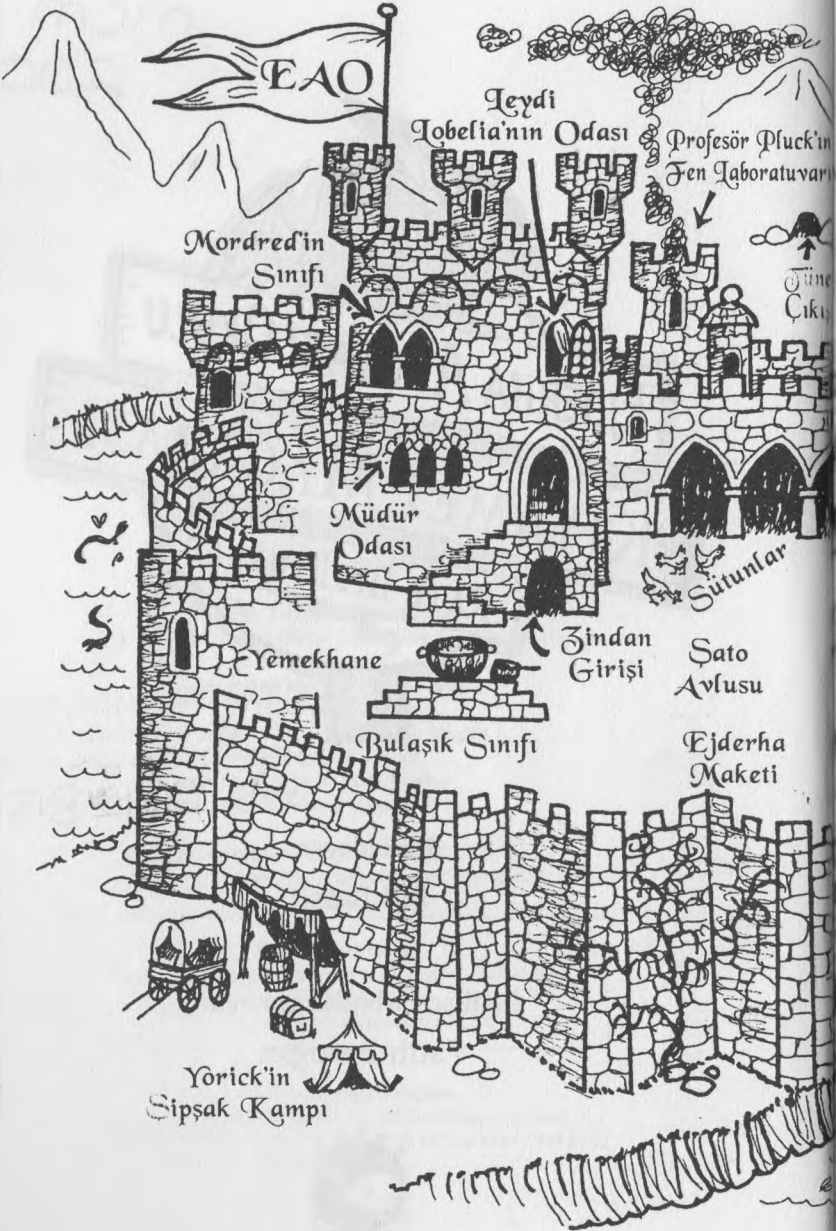 EAO
Leydi
Lobelia'nın Odası
Profesör Pluck'ın
Fen Laboratuvarı
Mordred'in
Sınıfı
Müdür
Odası
Sütunlar
Zindan
Girişi
Şato
Avlusu
Yemekhane
Bulaşık Sınıfı
Ejderha
Maketi
Yorick'in
Sipşak Kampı